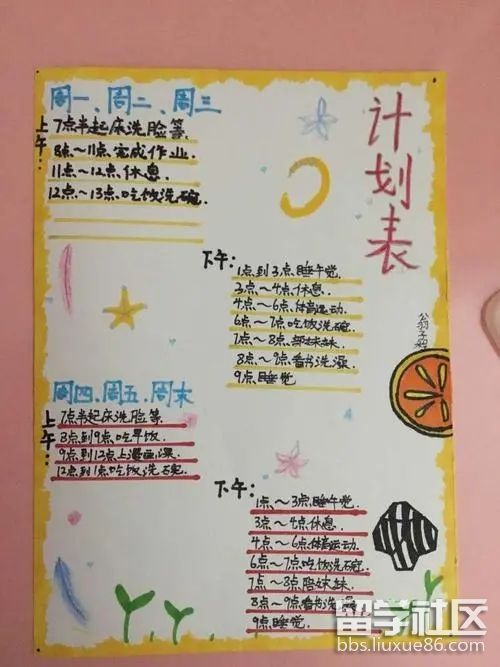 计划表
周一、周二、周三
上午:
7点半起床洗脸等.
8点~11点完成作业.
11点~12点.休息.
12点~13点吃饭洗碗.
下午:
1点到3点睡午觉.
3点~4点休息.
4点~6点体育运动.
6点~7点吃饭洗碗.
7点~8点.陪妹妹.
8点~9点看书洗澡.
9点睡觉
周四、周五、周末
上午:
7点半起床洗脸等.
8点到9点吃早饭.
9点到12点上漫画课.
12点到1点吃饭洗碗.
下午:
1点~3点睡午觉.
3点~4点休息.
4点~6点体育运动.
6点~7点吃饭洗碗.
7点~8点陪妹妹.
8点~9点看书洗澡.
9点睡觉.
留学社区
bbs.liuxue86.com